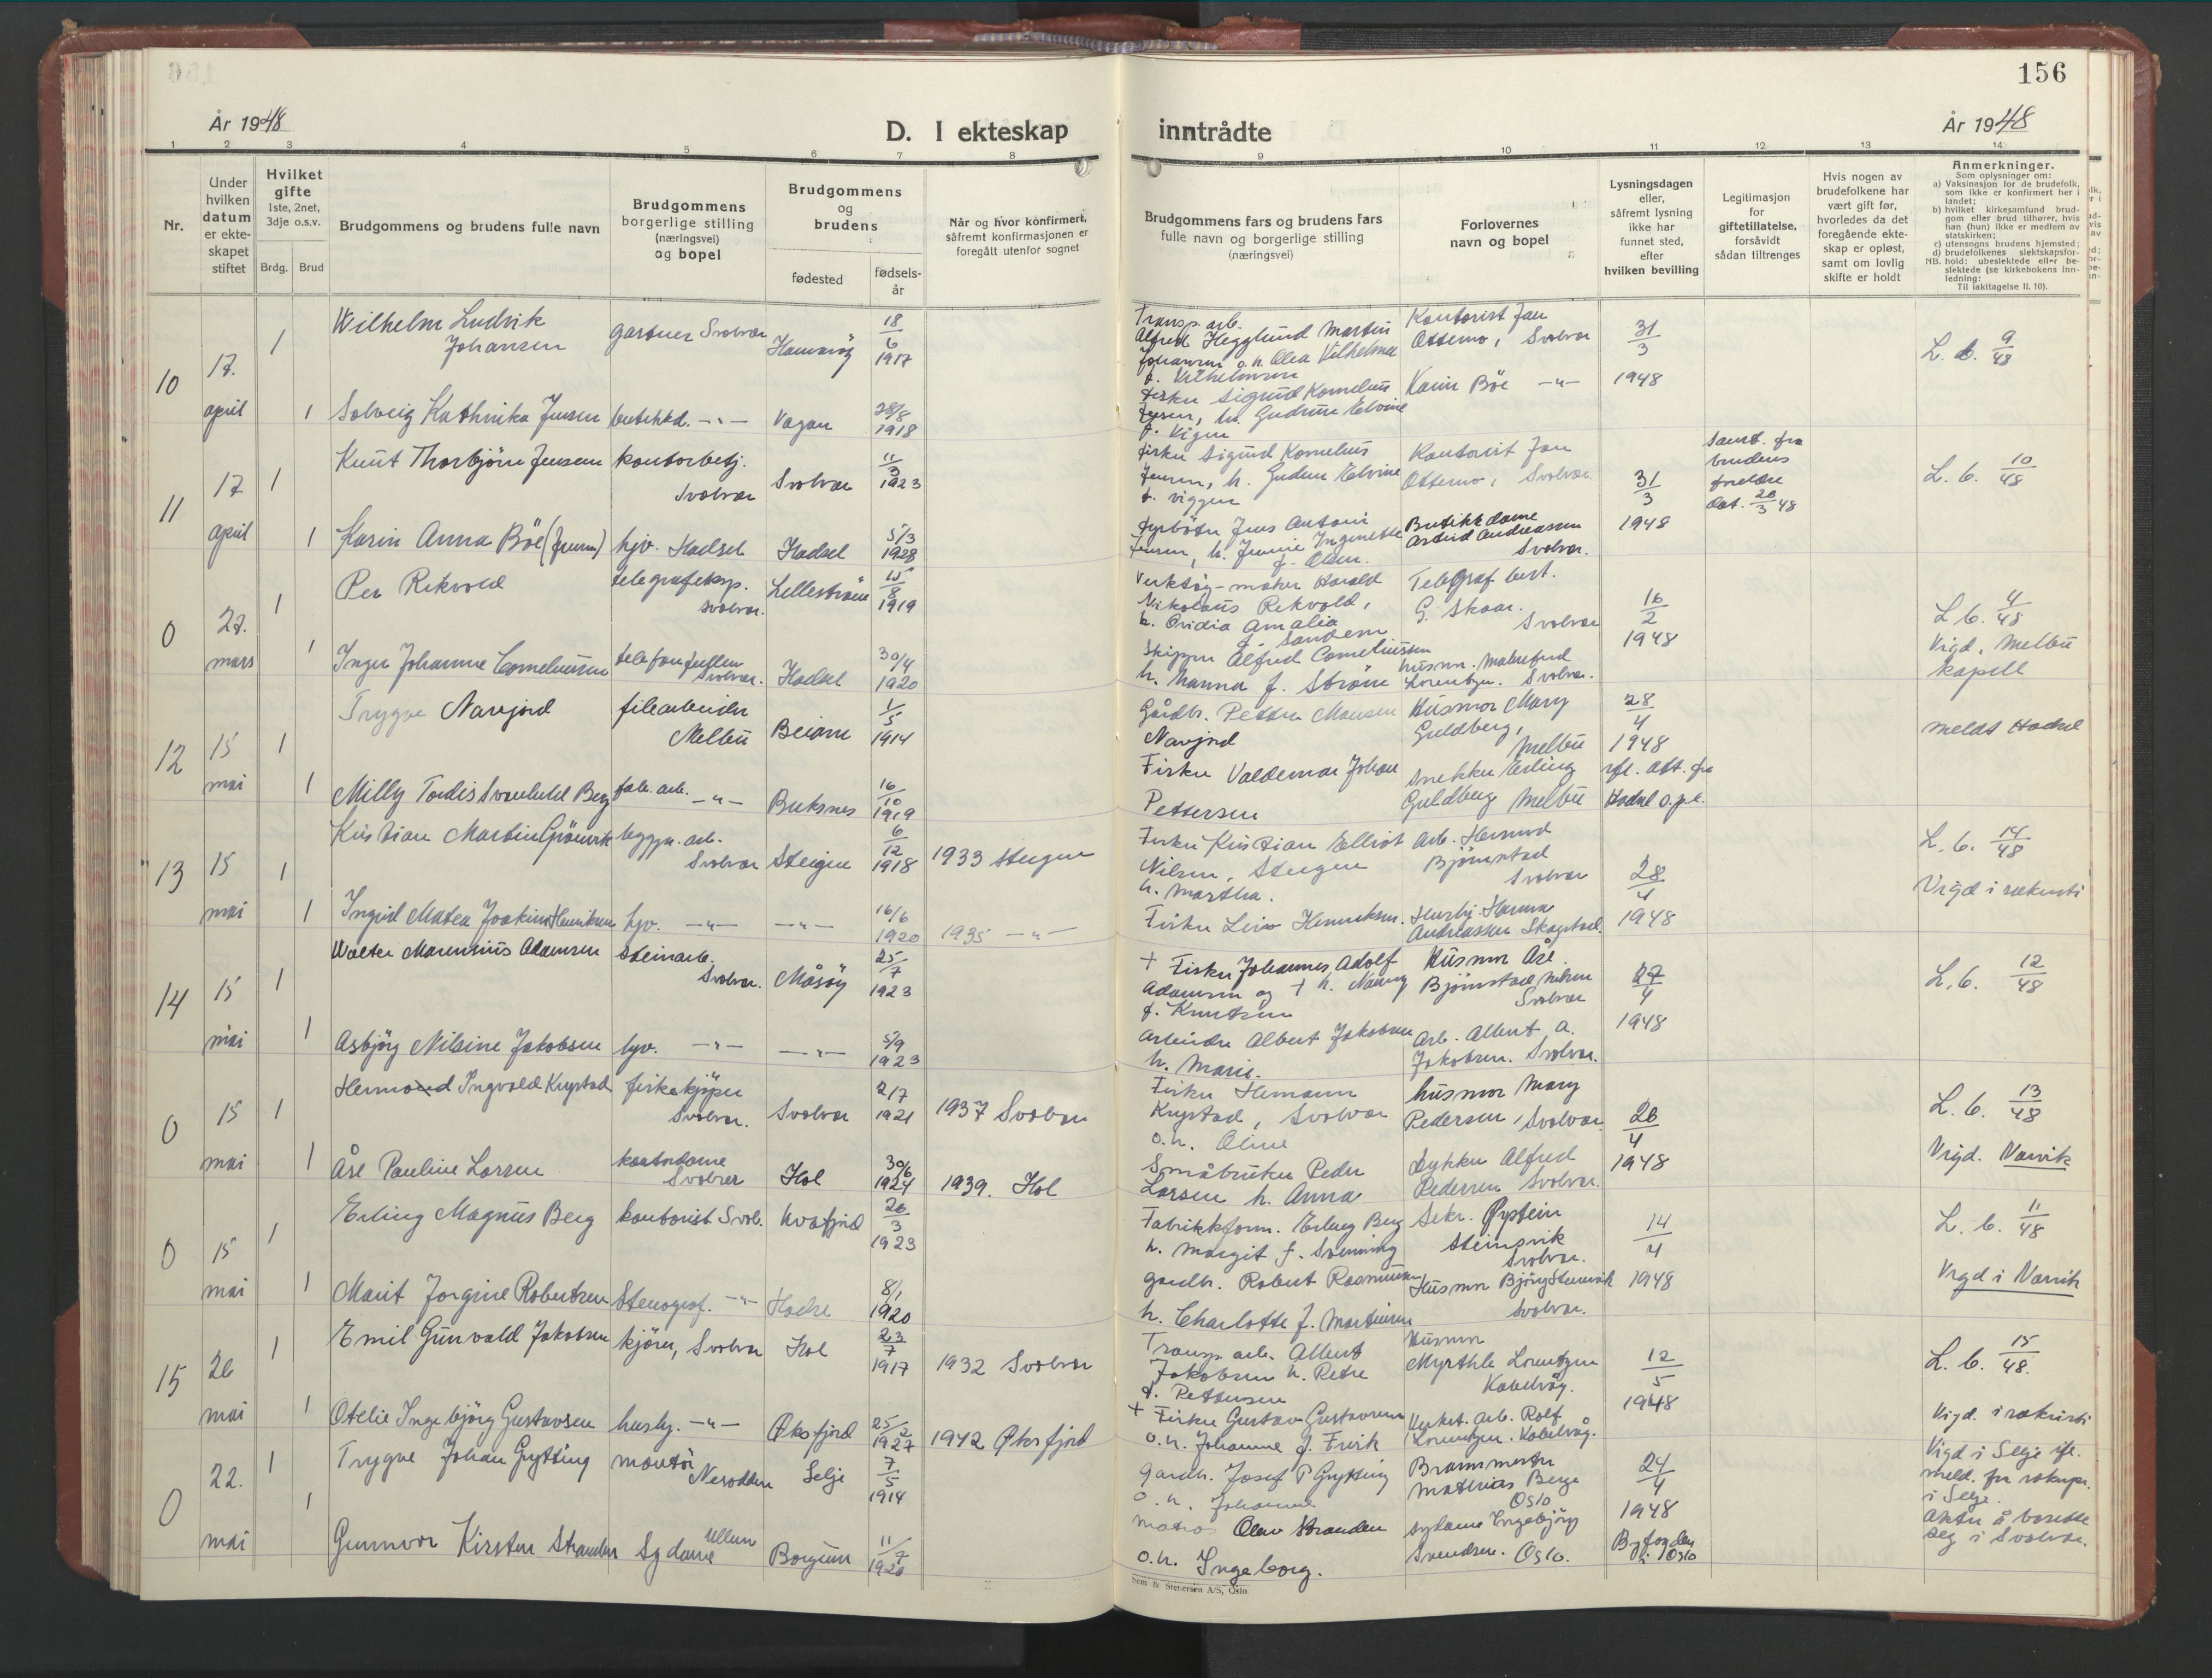 156
År 1948
D. I ekteskap inntrådte
År 1948
1 2 3 4 5 6 7 8 9 10 11 12 13 14
Nr.
Under hvilken datum er ekteskapet stiftet
Hvilket gifte
1ste, 2net, 3dje o.s.v.
Brdg. Brud
Brudgommens og brudens fulle navn
Brudgommens borgerlige stilling (næringsvei) og bopel
Brudgommens og brudens
fødested
fødselsår
Når og hvor konfirmert, såfremt konfirmasjonen er foregått utenfor sognet
Brudgommens fars og brudens fars fulle navn og borgerlige stilling (næringsvei)
Forlovernes navn og bopel
Lysningsdagen eller, såfremt lysning ikke har funnet sted, efter hvilken bevilling
Legitimasjon for giftetillatelse, forsåvidt sådan tiltrenges
Hvis nogen av brudefolkene har vært gift før, hvorledes da det foregående ekteskap er opløst, samt om lovlig skifte er holdt
Anmerkninger.
Som oplysninger om:
a) Vaksinasjon for de brudefolk, som ikke er konfirmert her i landet;
b) hvilket kirkesamfund brudgom eller brud tilhører, hvis han (hun) ikke er medlem av statskirken;
c) utensogns brudens hjemsted;
d) brudefolkenes slektskapsforhold: ubeslektede eller beslektede (se kirkebokens innledning:
NB.
Til iakttagelse II. 10).
10 17. april 1 Wilhelm Ludvik Johansen gartner Svolvær Hamarøy 18/6 1917
Transp. arb. Alfred Hegglund Martin Johansen o. h. Olea Vilhelma f. Vilhelmsen
Kontorist Jan Ottemo, Svolvær
31/3 1948
L. b. 9/48
1 Solveig Kathinka Jensen butikkd. -"- Vågan 28/8 1918
Fisker Sigurd Kornelius Jensen, h. Gudrun Elvine f. Vigen
Karin Böe -"-
11 17 april 1 Knut Thorbjörn Jensen kontorbetj. Svolvær Svolvær 11/3 1923
Fisker Sigurd Kornelius Jensen, h. Gudrun Elvine f. Viggen
Kontorist Jan Ottemo, Svolvær
31/3 1948
Samt. fra brudens foreldre dat. 28/3 48
L. b. 10/48
1 Karin Anna Böe (Jensen) hjv. Hadsel Hadsel 5/3 1928
Fyrböter Jens Antoni Jensen, h. Jennie f. Olsen.
Butikkdame Astrid Andreassen Svolvær.
0 27. mars 1 Per Rekvold telegrafeksp. Svolvær. Lilleström 15/8 1919
Verktøy-maker Harald Nikolaus Rekvold, h. Ovidia Amalia f. Sandem
Telegraf best. G. Skaar. Svolvær
16/2 1948
L. b. 4/48
Vigd, Melbu kapell
1 Inger Johanne Corneliussen Svolvær. Hadsel 30/4 1920
Skipper Alfred Corneliussen h. Hanna f. Ström
Lorentzen. Svolvær.
12 15 mai 1 Trygve Navjord filearbeider Melbu Beiarn 1/5 1914
Gårdbr. Petter Mausen Navjord
Husmor Mary Guldberg, Melbu
28/4 1948
ifl. att. fra Hadsel s.p.k.
meldt Hadsel
1 Milly Tordis Svanhild Berg fabr. arb. -"- Buksnes 16/10 1919
Fisker Valdemar Johan Pettersen
Snekker Erling Guldberg Melbu
13 15 mai 1 Kristian Martin Grönvik byggn. arb. Svolvær Steigen 6/12 1918 1933 Steigen
Fisker Kristian Elliot Nilsen, Steigen h. Martha.
Arb. Hermod Bjørnstad Svolvær
28/4 1948
L. b. 14/48
Vigd i sakristi
1 Ingrid Matea Joakima Henriksen hjv. -"- -"- 16/6 1920 1935 -"-
Fisker Leif Henriksen.
Husby. Hanna Andreassen Skogstad.
14 15 mai 1 Walter Marentius Adamsen Steinarb. Svolvær. Måsøy 25/7 1923
+ Fisker Johannes Adolf Adamsen og + h. Nanny f. Knutsen
Husmor Åse Bjørnstad Nilsen Svolvær
27/4 1948
L. b. 12/48
1 Asbjörg Nilsine Jakobsen hjv. -"- -"- 5/9 1923
Arbeider Albert Jakobsen h. Marie.
Arb. Albert A. Jakobsen. Svolvær.
0 15 mai 1 Hermod Ingvald Krystad fiskekjöper Svolvær. Svolvær 2/7 1921 1937 Svolvær
Fisker Hemann Krystad, Svolvær o. h. Oline
husmor Mary Pedersen, Svolvær
26/4 1948
L. b. 13/48
Vigd. Narvik
1 Åse Pauline Larsen kontordame Svolvær Hol 30/6 1924 1939. Hol
Småbruker Peder Larsen h. Anna
Dykker Alfred Pedersen Svolvær.
0 15 mai 1 Erling Magnus Berg kontorist Svolv. Kvæfjord 26/3 1923
Fabrikkform. Erling Berg h. Margit f. Svenning
Sekr. Øystein Steinsvik Svolvær.
14/4 1948
L. b. 11/48
Vigd i Narvik
1 Marit Jorgine Robertsen Stenograf. -"- Hadsel 8/1 1920
Gårdbr. Robert Rasmussen h. Charlotte f. Martinsen
Husmor Bjørg Steinsvik Svolvær.
15 26 mai 1 Emil Gunvald Jakobsen kjører, Svolvær Hol 23/7 1917 1932 Svolvær
Transp. arb. Albert Jakobsen h. Petra f. Pettersen
Husmor Myrthle Lorentzen Kabelvåg.
12/5 1948
L. b. 15/48.
Vigd. i sakristi
1 Otelie Ingebjörg Gustavsen hushj. -"- Øksfjord 25/2 1927 1942 Øksfjord
+ Fisker Gustav Gustavsen o. h. Johanne f. Frisk
Verkst. arb. Rolf Lorentzen. Kabelvåg.
0 22. mai 1 Trygve Johan Grytting montör Nesodden Selje 7/5 1914
Gårdbr. Josef P Grytting o. h. Johanne
Brannmester Mathias Berge Oslo
24/4 1948
Byfogden i Oslo
Vigd i Selje ifl. meld. fra soknepr. i Selje. Akter å bosette seg i Svolvær.
1 Gunnvor Kirsten Stranden Sydame Ullern Borgund 11/7 1920
Matros Olav Stranden o. h. Ingeborg.
Sydame Ingebjörg Svendsen. Oslo.
Sem & Stenersen A/S, Oslo